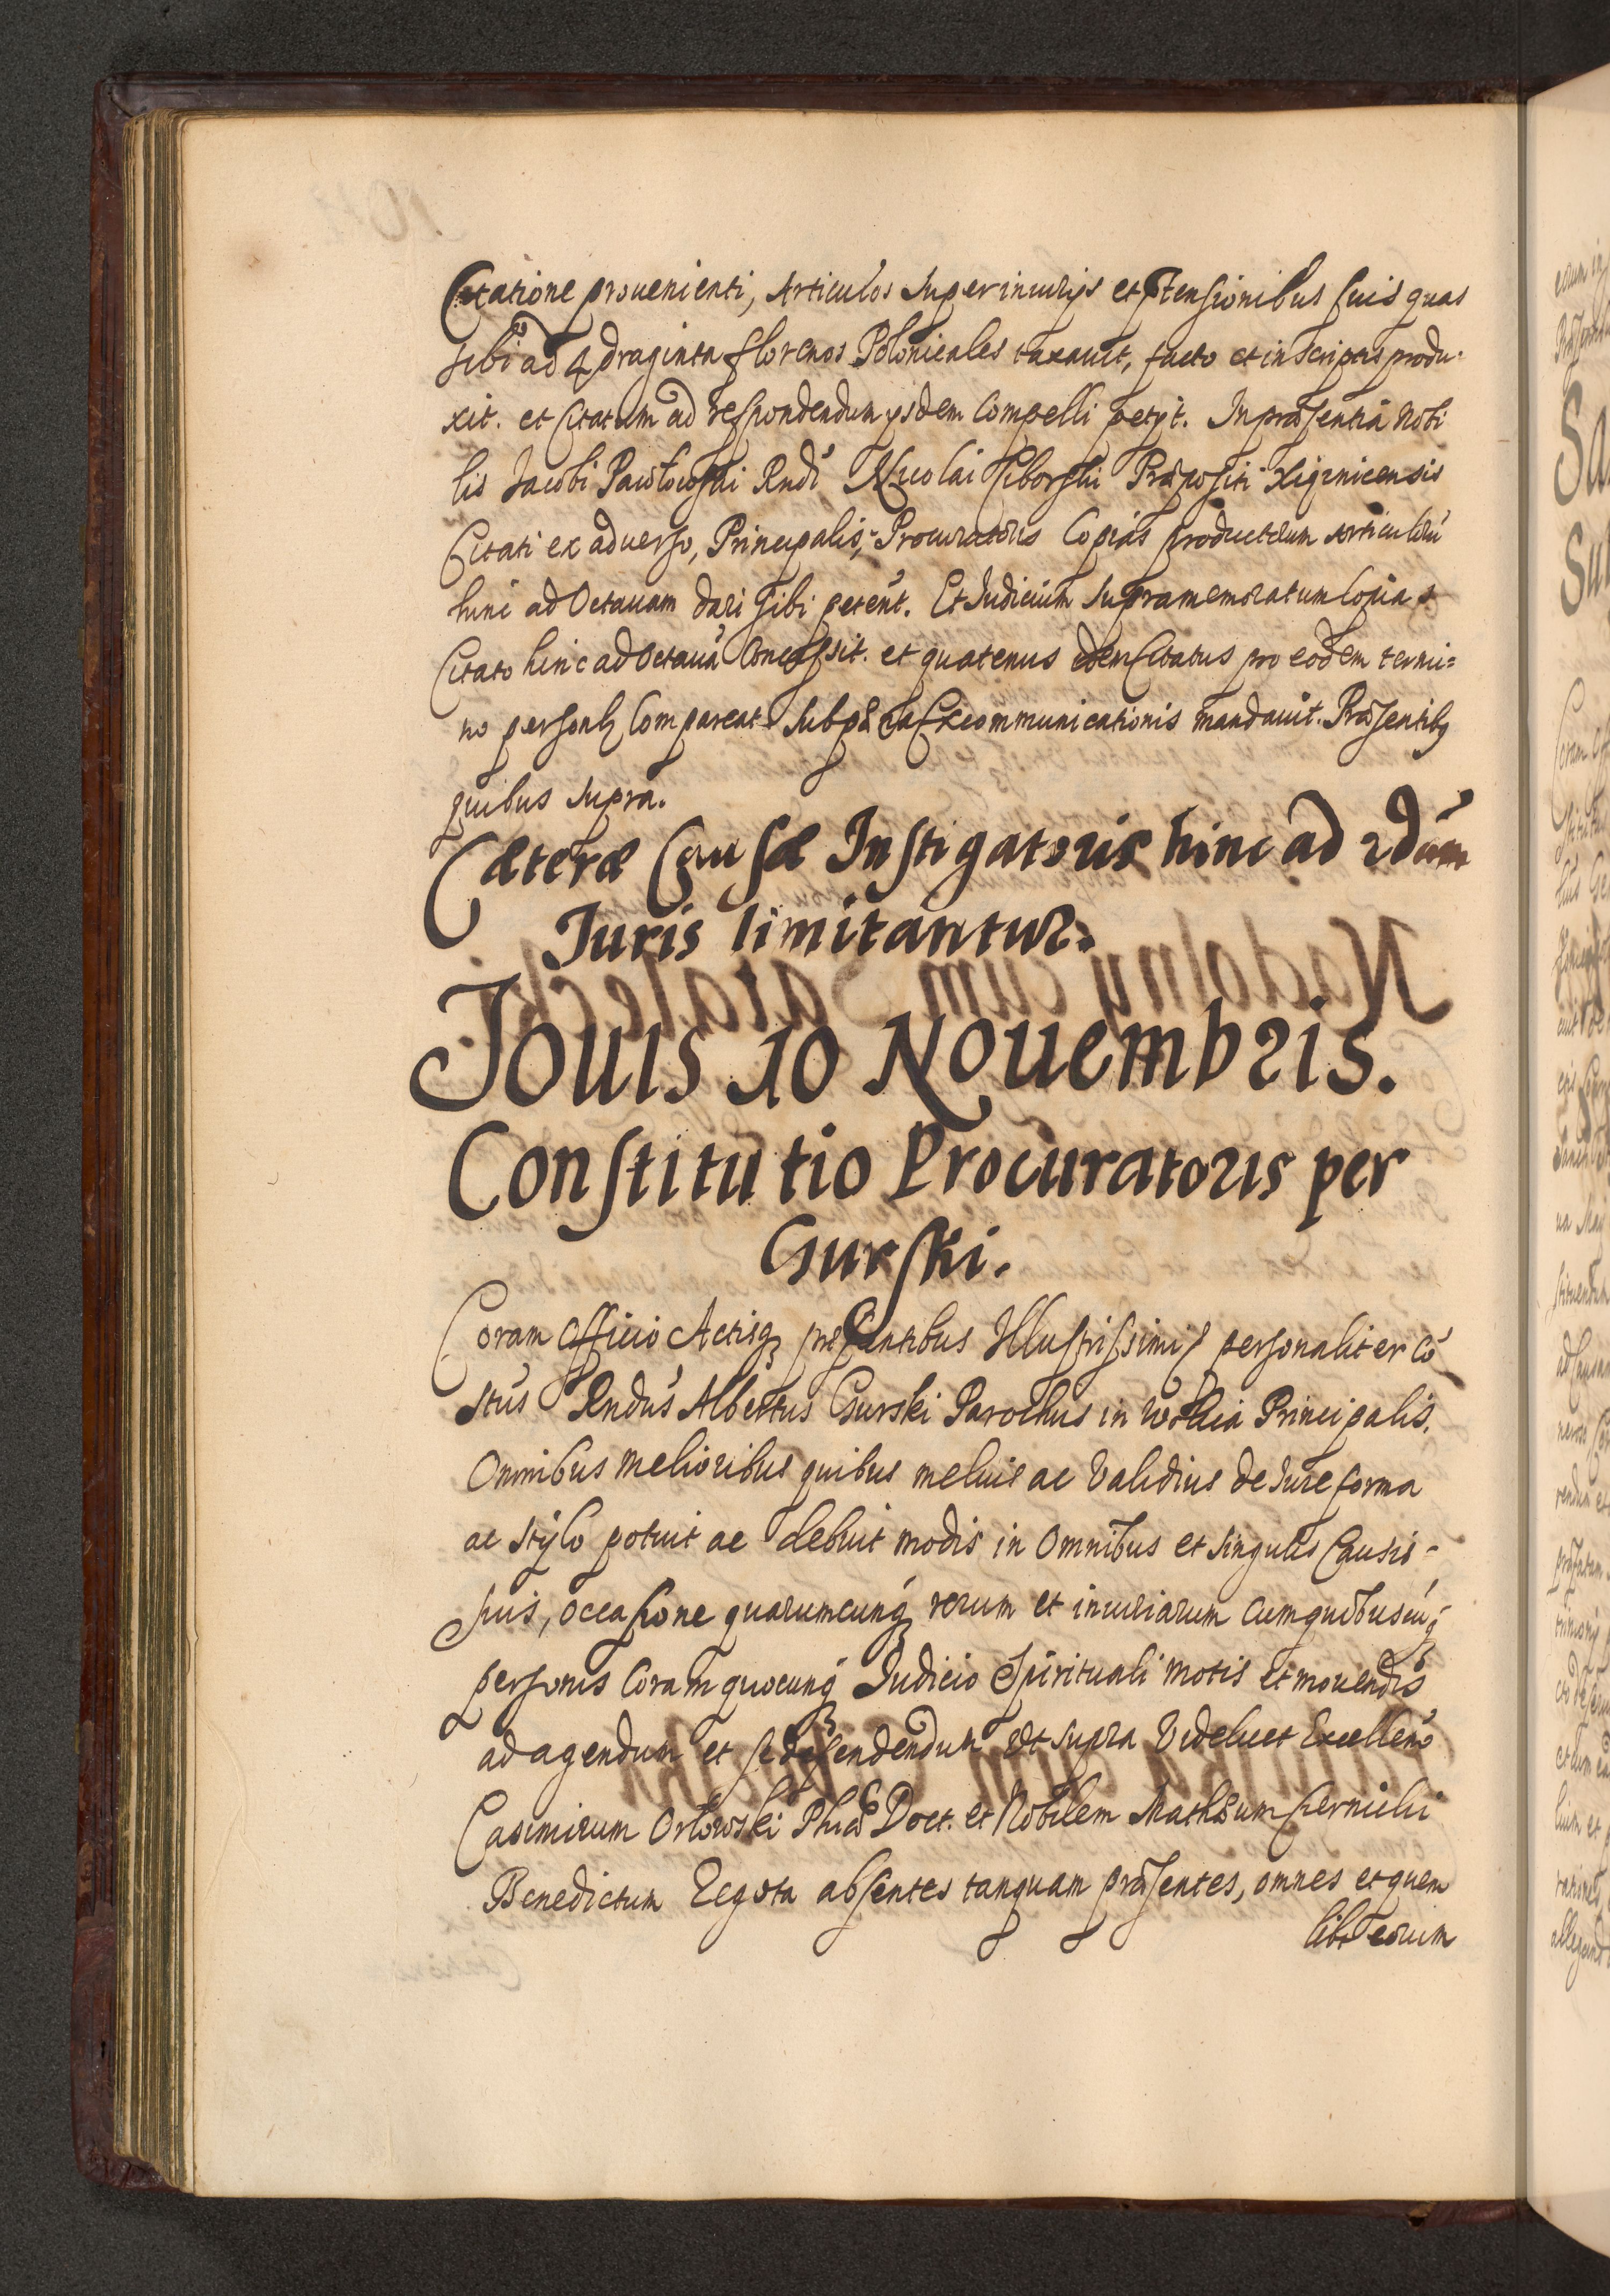 Citatione prouenienti, Articulos super iniurijs et ptensionibus suis quas
sibi ad 4draginta florenos Polonicales taxauit, facto et in scriptis produ-
xit. et Citatum ad respondendum ijsdem Compelli petijt. In præsentia Nobi
lis Jacobi Pawłowski Rndi Nicolai Ciborski Præpositi
Citati ex aduerso, Principalis, Procuratoris Copias productorum Articulorũ
hinc ad Octauam dari sibi petent. Et Judicium supramemoratum Copias
Citato hinc ad Octauã Concessit. et quatenus idem Citatus pro eodem termi=
no personlr Compareat sub pæna Excommunicationis mandauit. Præsentibq
quibus supra.
Cæteræ Causæ Instigatoris hinc ad 2dam
Juris limitantur.
Jouis 10 Nouembris.
Constitutio Procuratoris per
Gurski.
Coram Officio Actisq præsentibus Illustrissimis personaliter cõ
stus Rndus Albertus Gurski Parochus in Wola Principalis.
Omnibus melioribus quibus melius ac Validius de Jure forma
ac stylo potuit ac debuit modis in Omnibus et singulis Causis -
suis, occasione quarumcunq rerum et iniuriarum cum quibuscũq
personis Coram quocunq Judicio Spirituali motis et mouendis
ad agendum et se defendendum Ut supra Videlicet Excellen̄
Casimirum Orłowski Phiæ Doct. et Nobilem Mathæum Czernicki
Benedictum Zegota absentes tanquam præsentes, omnes et quem
libt eorum